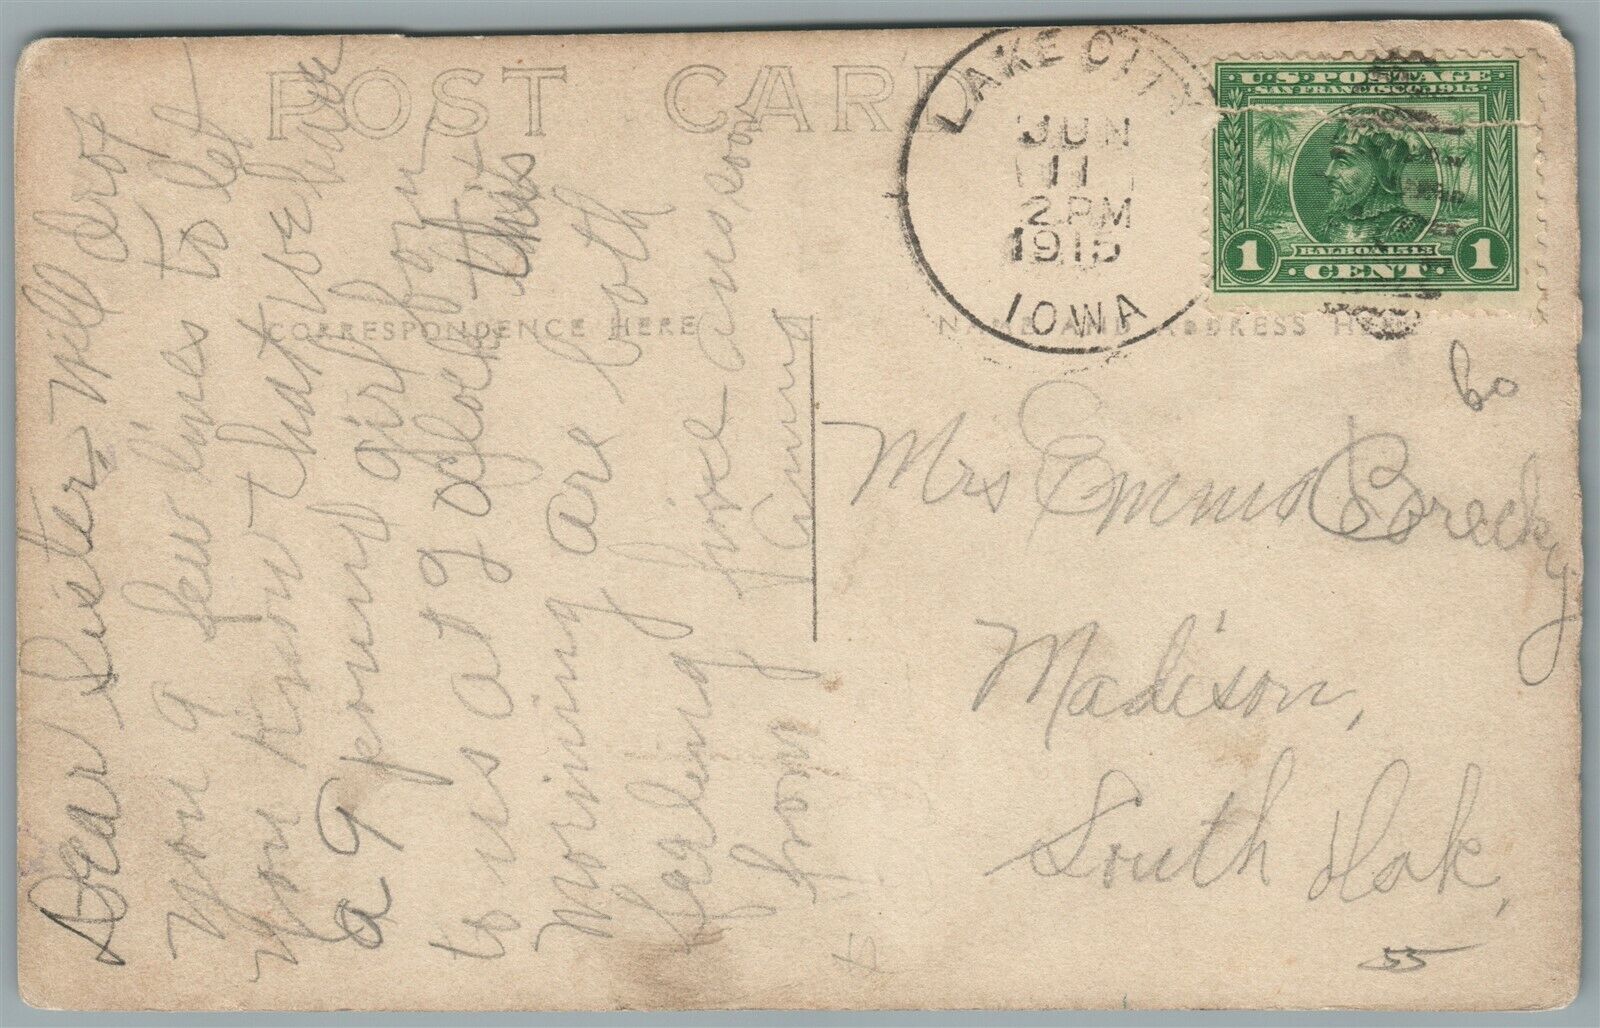 POST CARD
CORRESPONDENCE HERE
NAME AND ADDRESS HERE
LAKE CITY
JUN
11
2 PM
1915
IOWA
U.S. POSTAGE
SAN FRANCISCO 1915
BALBOA 1513
1 CENT 1
Dear Sister, Will drop
you a few lines to let
you know that we have
a 9 pound girl born
to us at 2 oclock this
morning are both
feeling fine ans soon
from
60
Mrs Emma Borecky
Madison,
South Dak,
55